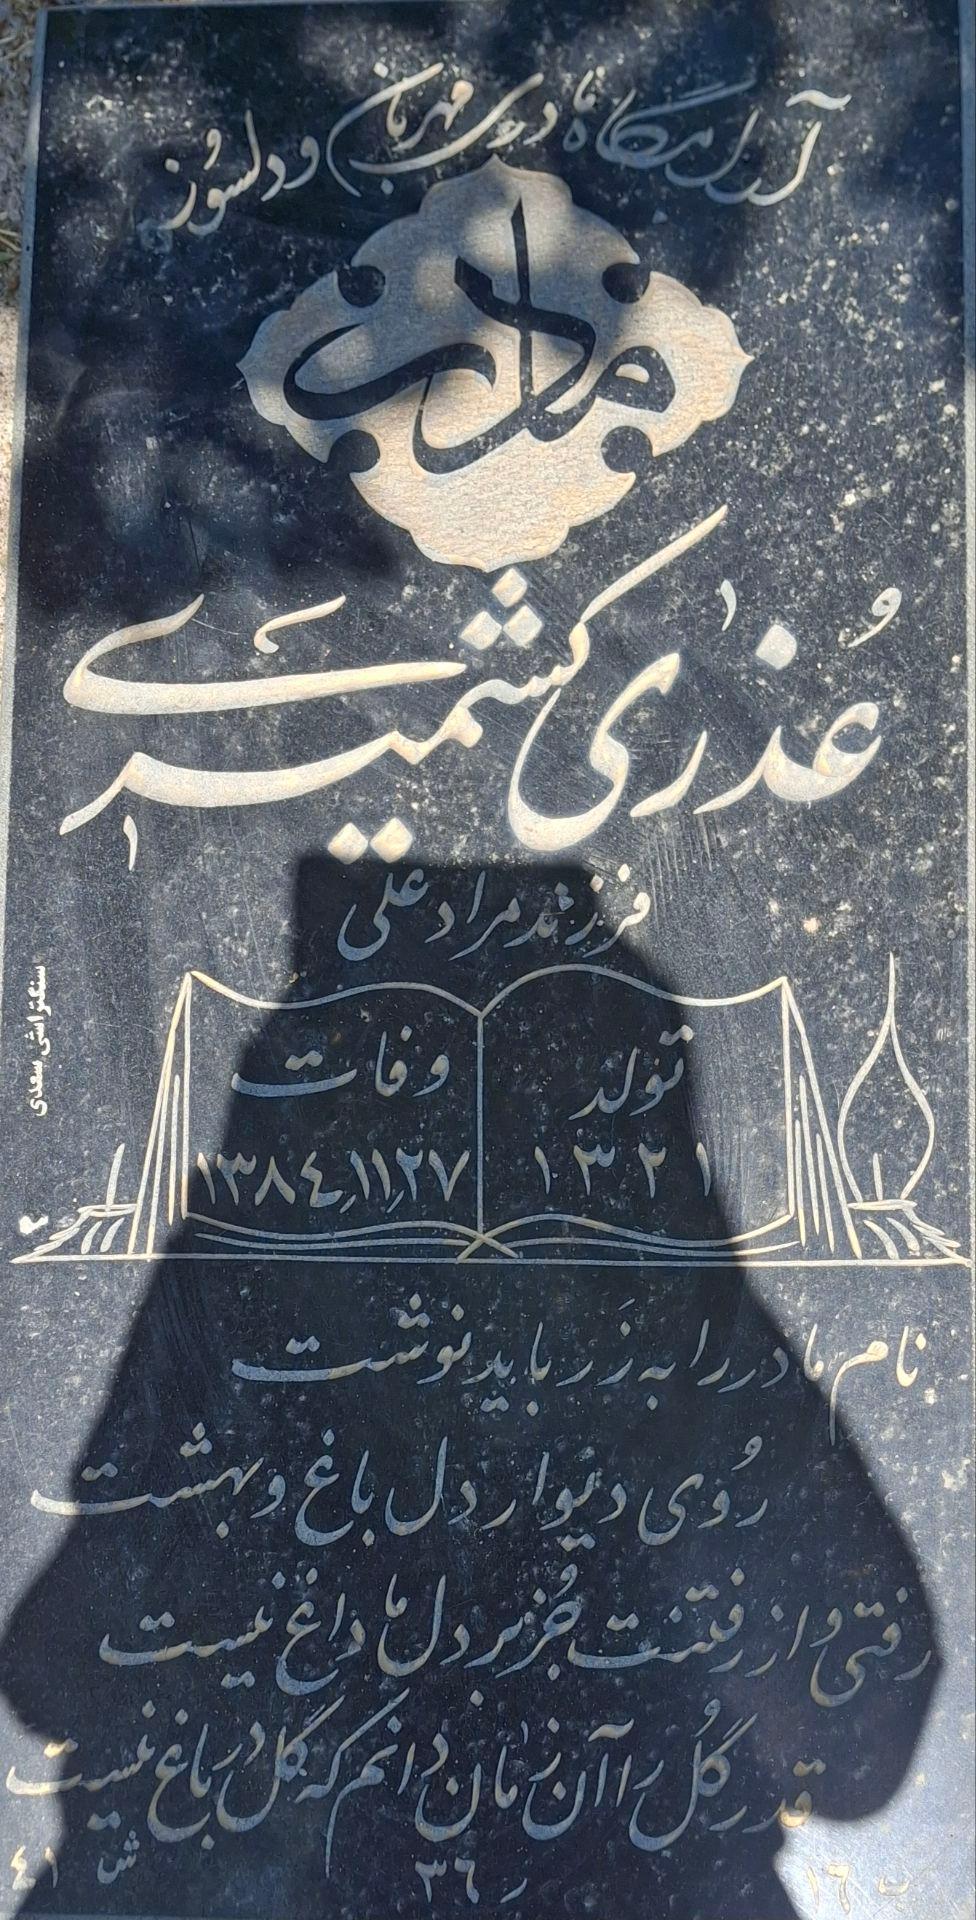 آرامگاه مادری مهربان و دلسوُز
مادر
عُذری کشمیری
فرزند مراد علی
تولد
۱۳۲۱
وفات
۱۳۸٤,۱۱,۲۷
سنگتراشی سعدی
نام مادر را به زَر باید نوشت
رُوی دیوار دل باغ و بهشت
رفتی و از رفتنت جُز بر دل ما داغ نیست
قدر گُل را آن زمان دانم که گل در باغ نیست
ب ۱٦
ر ۳٦
ش ٤۱